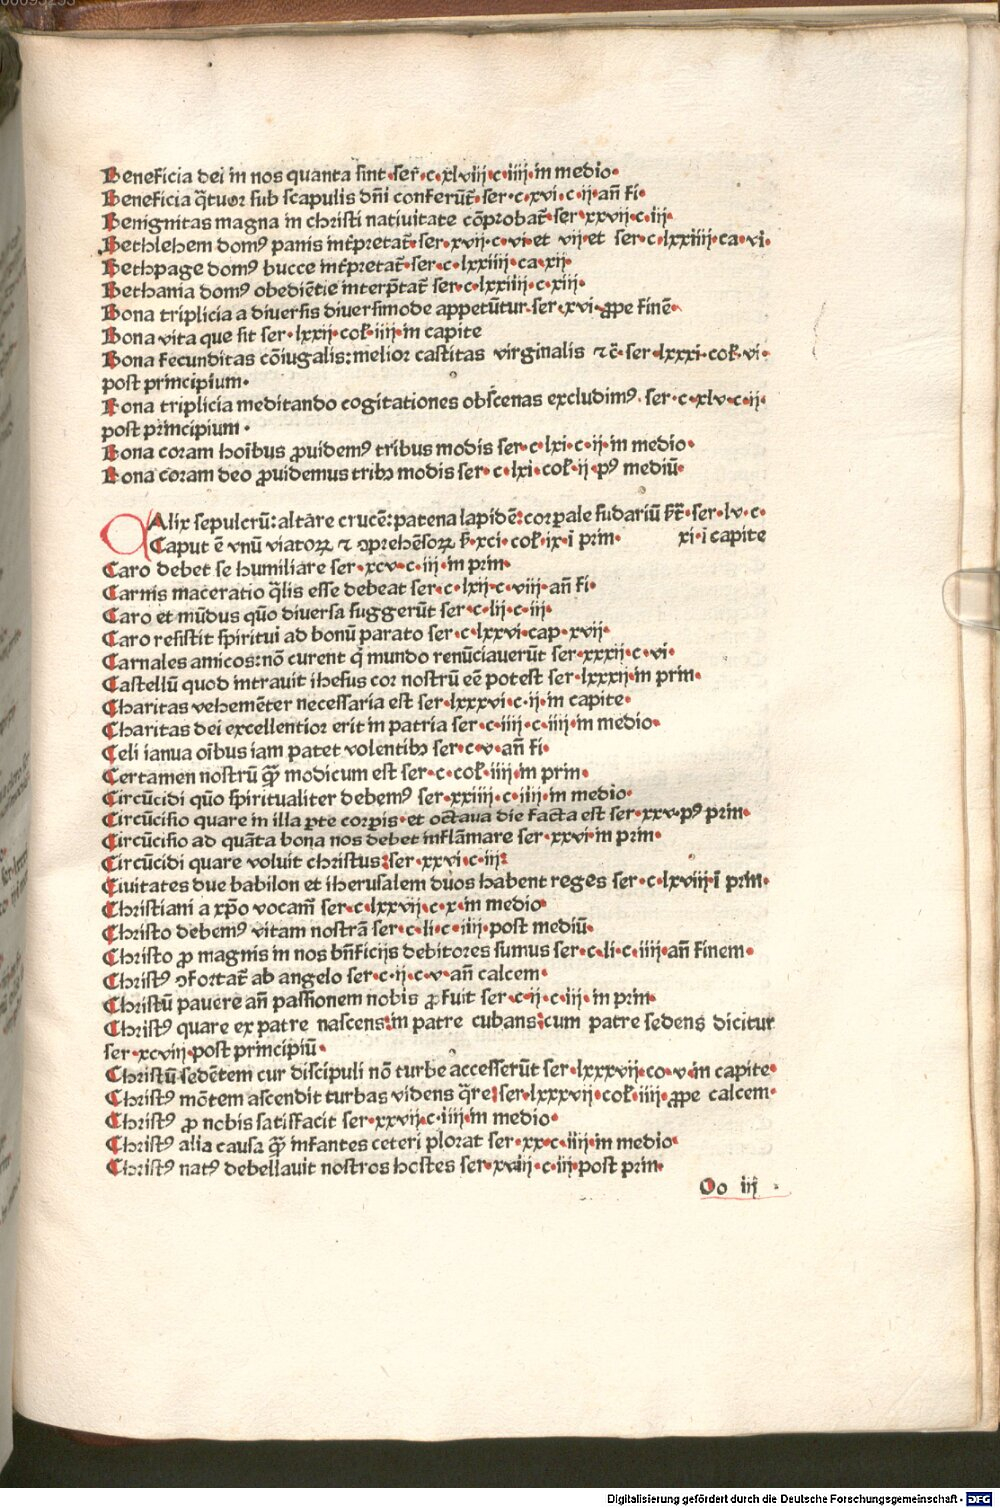 Beneficia dei in nos quanta sint·ser̄·c·xlviij·c·iiij·in medio·
Beneficia q̄tuor sub scapulis dn̄i conferūt̄·ser·c·xvi·c·ij·an̄ fi·
Benignitas magna in christi natiuitate cōprobat̄·ser·xxvij·c·iij·
Bethlehem domꝰ panis inťpretat̄·ser·xvij·c·vi·et vij·et ser·c·lxxiiij·ca·vi·
Bethpage domꝰ bucce inťpretat̄·ser·c·lxxiiij·ca·xij·
Bethania domꝰ obediētie interp̄tat̄ ser·c·lxxiiij·c·xiij·
Bona triplicia a diuersis diuersimode appetūtur·ser·xvi·ꝓpe finē·
Bona vita que sit ser·lxxij·col̄·iiij·in capite
Bona fecunditas cōiugalis:melior castitas virginalis ⁊c̄·ser·lxxxi·col̄·vi·
post principium·
Bona triplicia meditando cogitationes obscenas excludimꝰ·ser·c·xlv·c·ij·
post principium·
Bona coram hoībus ꝓuidemꝰ tribus modis ser·c·lxi·c·ij·in medio·
Bona coram deo ꝓuidemus tribꝫ modis ser·c·lxi·col̄·ij·pꝰ mediū·
Alix sepulcrū:altare crucē:patena lapidē:corpale sudariū ſ̄t̄·ser·lv·c·
Caput ē vnū viatoꝝ ⁊ ꝯprehēsoꝝ ſ̄·xci·col̄·ix·ī prin· xi·ī capite
Caro debet se humiliare ser·xcv·c·iij·in prin·
Carnis maceratio q̄lis esse debeat ser·c·lxij·c·viij·an̄ fi·
Caro et mūdus quō diuersa suggerūt ser·c·lij·c·iij·
Caro resistit spiritui ad bonū parato ser·c·lxxvi·cap·xvij·
Carnales amicos:nō curent q̇ mundo renūciauerūt ser·xxxij·c·vi·
Castellū quod intrauit ihesus cor nostrū eē potest ser·lxxxij·in prin·
Charitas vehemēter necessaria est ser·lxxxvi·c·ij·in capite·
Charitas dei excellentior erit in patria ser·c·iiij·c·iiij·in medio·
Celi ianua oībus iam patet volentibꝫ ser·c·v·an̄ fi·
Certamen nostrū ꝙ̄ modicum est ser·c·col̄·iiij·in prin·
Circūcidi quō spiritualiter debemꝰ ser·xxiiij·c·iiij·in medio·
Circūcisio quare in illa ꝑte corꝑis·et octaua die facta est ser·xxv·pꝰ prin·
Circūcisio ad quāta bona nos debet inflāmare ser·xxvi·in prin·
Circūcidi quare voluit christus:ser·xxvi·c·iij:
Ciuitates due babilon et iherusalem duos habent reges ser·c·lxviij·ī prin·
Christiani a xp̄o vocam̄ ser·c·lxxvij·c·x·in medio·
Christo debemꝰ vitam nostrā ser·c·li·c·iiij·post mediū·
Christo ꝓ magnis in nos bn̄ficijs debitores sumus ser·c·li·c·iiij·an̄ finem·
Christꝰ ꝯfortat̄ ab angelo ser·c·ij·c·v·an̄ calcem·
Christū pauere an̄ passionem nobis ꝓfuit ser·c·ij·c·iij·in prin·
Christꝰ quare ex patre nascens:in patre cubans:cum patre sedens dicitur
ser·xcviij·post principiū·
Christū sedētem cur discipuli nō turbe accesserūt ser·lxxxvij·co·v·in capite·
Christꝰ mōtem ascendit turbas videns q̄re:ser·lxxxvij·col̄·iiij·ꝓpe calcem·
Christꝰ ꝓ nobis satisfacit ser·xxvij·c·iiij·in medio·
Christꝰ alia causa ꝙ̄ infantes ceteri plorat ser·xx·c·iiij·in medio·
Christꝰ natꝰ debellauit nostros hostes ser·xviij·c·iij·post prin·
Oo iij
Digitalisierung gefördert durch die Deutsche Forschungsgemeinschaft - DFG